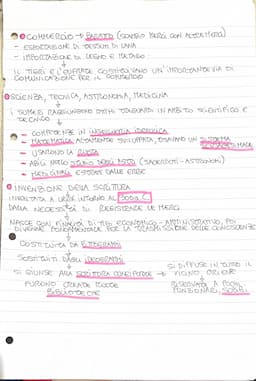 COMMERCIO → BARATTO (SCAMBIO MERCI CON ALTRA MERCE)
- ESPORTAZIONE DI TESSUTI DI LANA
- IMPORTAZIONE DI LEGNO E METALLO
IL TIGRI E L'EUFRATE COSTITUIVANO UN'IMPORTANTE VIA DI
COMUNICAZIONE PER IL COMMERCIO
SCIENZA, TECNICA, ASTRONOMIA, MEDICINA
I SUMERI RAGGIUNGONO OTTIMI TRAGUARDI IN AMBITO SCIENTIFICO E
TECNICO
- COMPETENZE IN INGEGNERIA IDRAULICA
- MATEMATICA ALTAMENTE SVILUPPATA, USAVANO UN SISTEMA
SESSAGESIMALE
- USAVANO LA RUOTA
- ABILI NELLO STUDIO DEGLI ASTRI (SACERDOTI-ASTRONOMI)
- MEDICINALI ESTRATTI DALLE ERBE
INVENZIONE DELLA SCRITTURA
INVENTATA A URUK INTORNO AL 3000 a.C.
DALLA NECESSITÀ DI REGISTRARE LE MERCI
NASCE CON FINALITÀ DI TIPO ECONOMICO-AMMINISTRATIVO, POI
DIVENNE FONDAMENTALE PER LA TRASMISSIONE DELLE CONOSCENZE
COSTITUITA DA PITTOGRAMMI
SOSTITUITI DAGLI IDEOGRAMMI
SI GIUNSE ALLA SCRITTURA CUNEIFORME → SI DIFFUSE IN TUTTO IL
VICINO ORIENTE
FURONO CREATE PICCOLE
BIBLIOTECHE
RISERVATA A POCHI
FUNZIONARI, SCRIBI